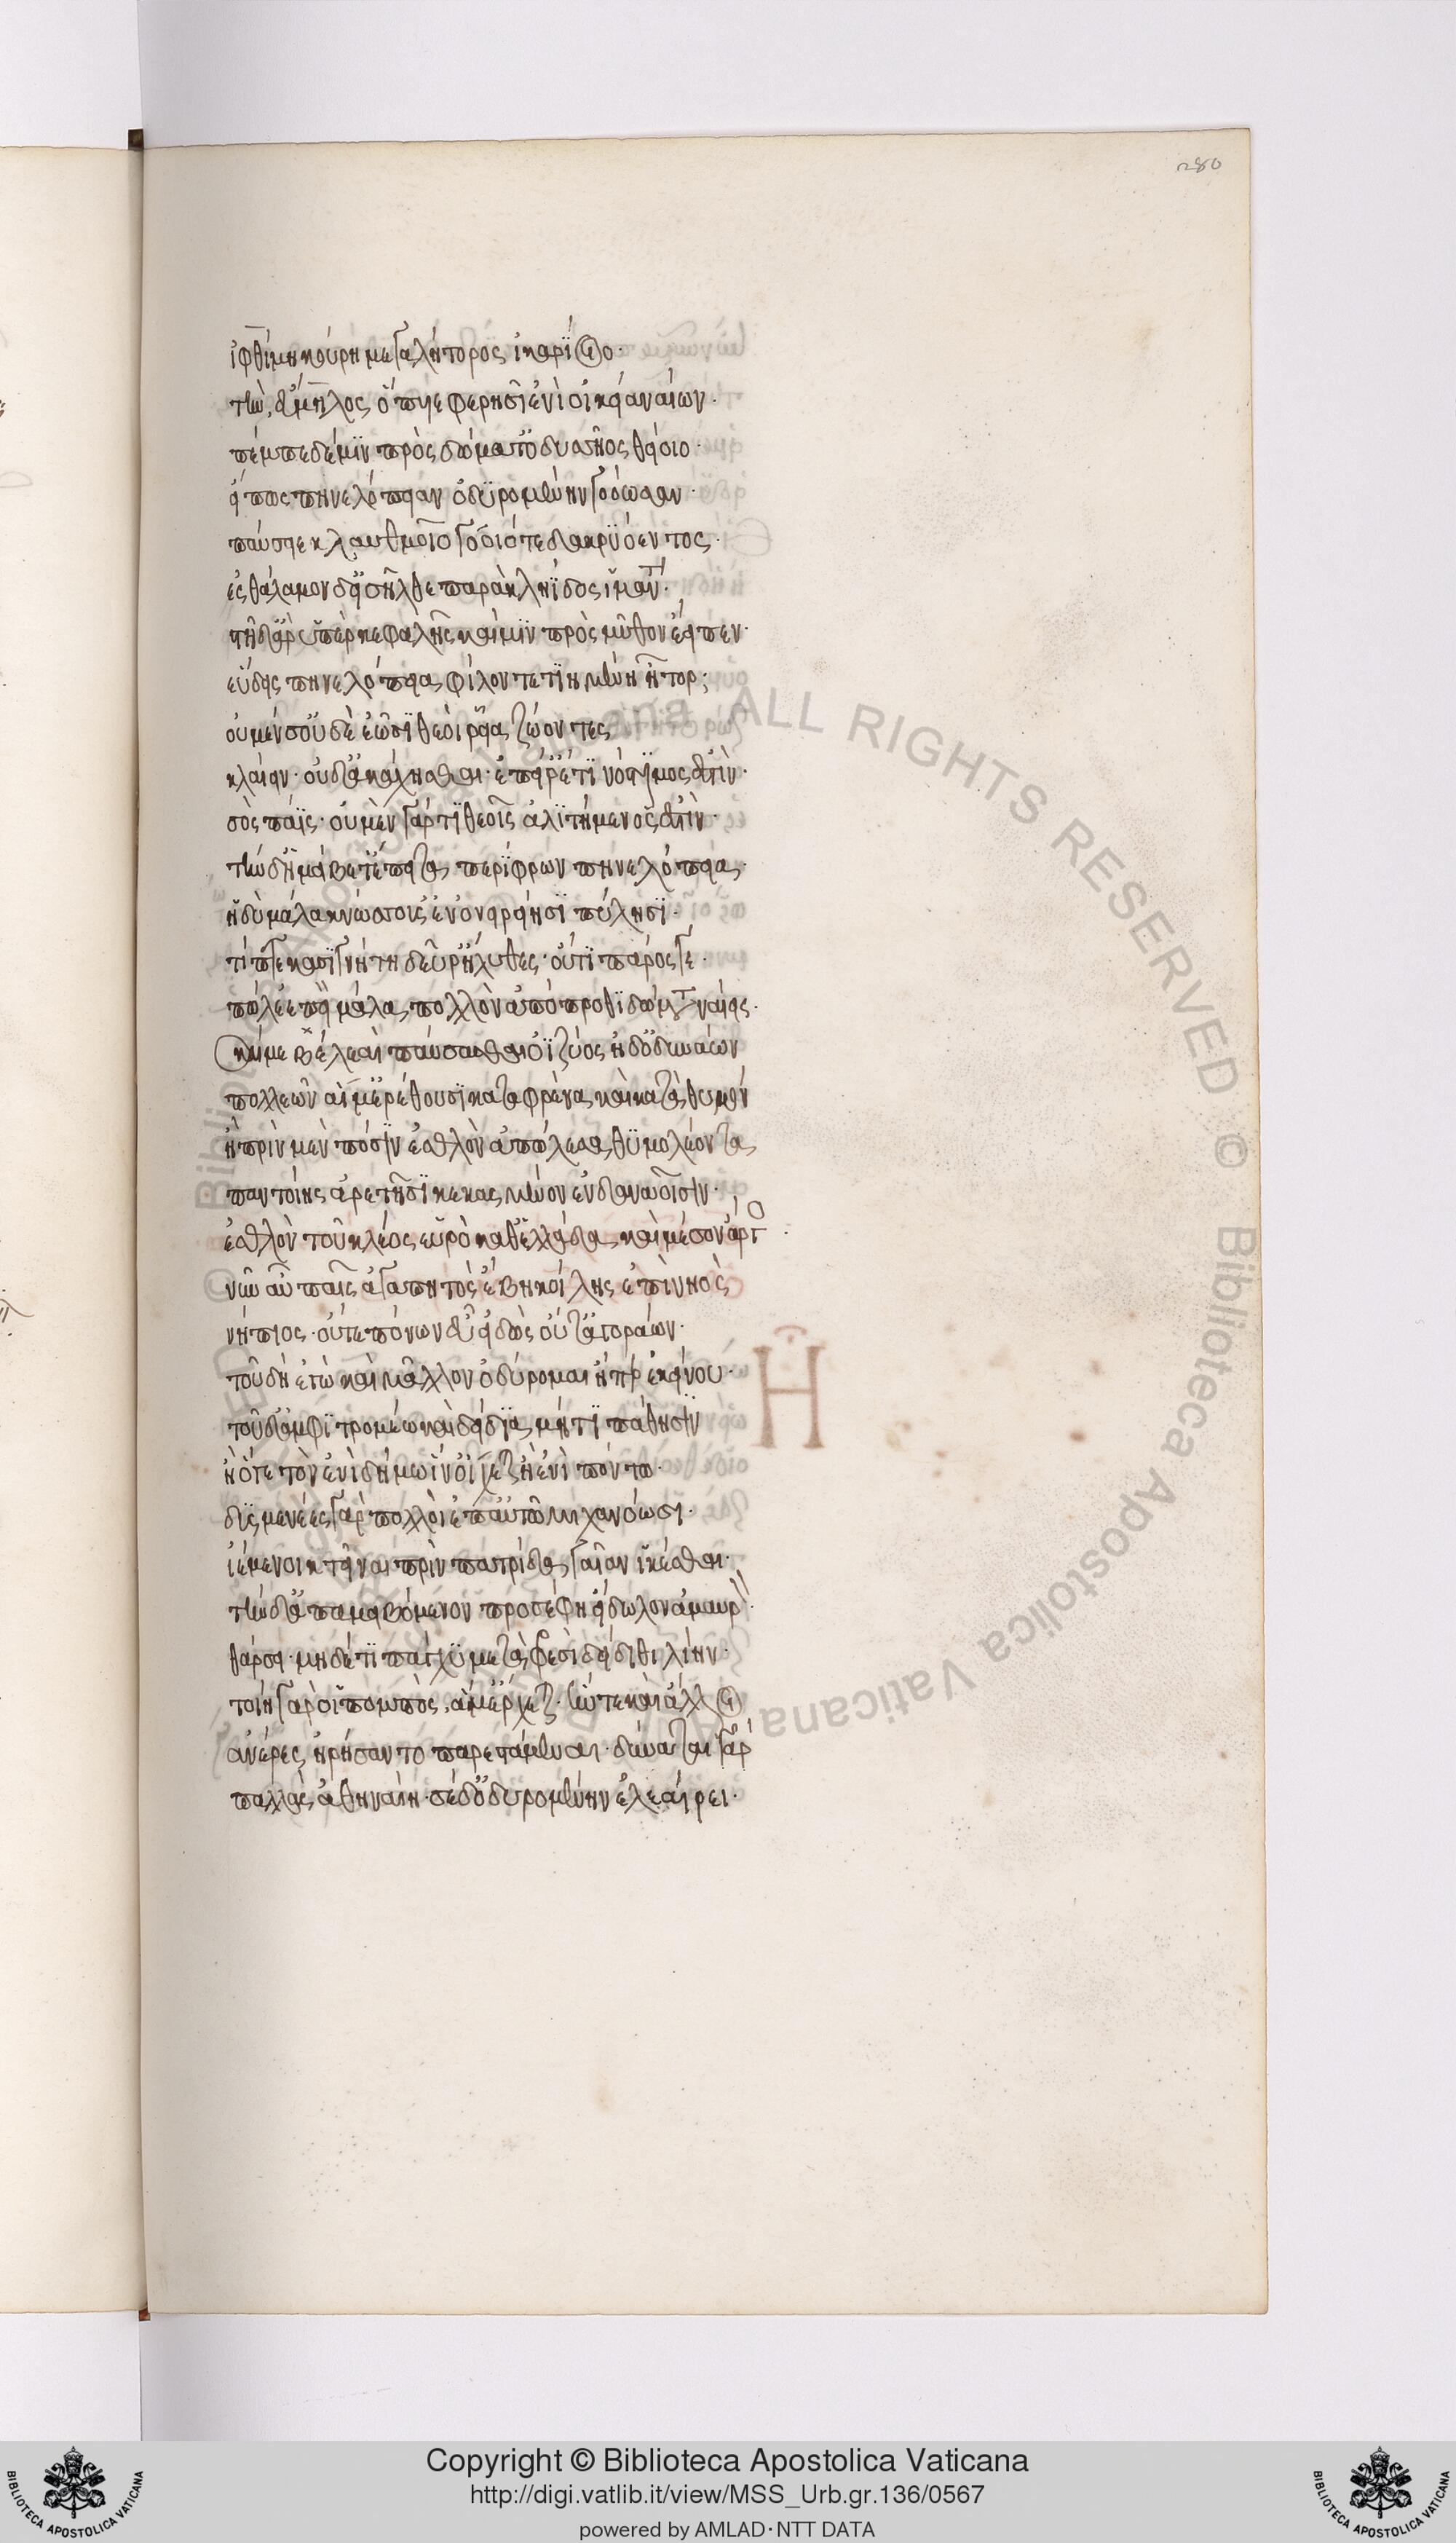 280
ἰφθίμη κούρη μεγαλήτορος ἰκαρίοιο·
τὴν εὔμηλος ὄπυιε φερῆσ ἐνὶ οἰκία ναίων·
πέμπε δέ μιν πρὸς δώματ' ὀδυσσῆος θείοιο·
εἵπως πηνελόπειαν ὀδυρομένην γοόωσαν·
παύσειε κλαυθμοῖο γόοιό τε δακρυόεντος·
ἐς θάλαμον δ' εἰσῆλθε παρὰ κληῖδος ἱμάντ·
στῆ δ' ἄρ' ὑπὲρ κεφαλῆς καί μιν πρὸς μῦθον ἔειπεν·
εὕδεις πηνελόπεια φίλον τετιημένη ἦτορ;
οὐ μέν σ' οὐδὲ ἐῶσι θεοὶ ῥεῖα ζώοντες
κλαίειν· οὐδ' ἀκάχησθαι· ἐπεί ῥ' ἔτι νόστιμός ἐστὶν·
σὸς πάϊς· οὐ μὲν γάρ τι θεοῖς ἀλιτήμενός ἐστὶν·
τὴν δ' ἠμείβετ' ἔπειτα περίφρων πηνελόπεια·
ἡδὺ μάλα κνώσσουσ' ἐν ὀνειρείησι πύλησι·
τίπτε κασιγνήτη δεῦρ' ἤλυθες· οὔτι πάρος γε·
πωλέ' ἐπεὶ μάλα πολλὸν ἀπόπροθι δώματα ναίεις·
καί με κέλεαι παύσασθαι ὀϊζύος ἠδ' ὀδυνάων
πολλέων αἵ μ' ἐρέθουσι κατὰ φρένα καὶ κατὰ θυμόν
ἣ πρὶν μὲν πόσιν ἐσθλὸν ἀπώλεσα θυμολέοντα
παντοίης ἀρετῆσι κεκασμένον ἐν δαναοῖσιν·
ἐσθλὸν τοῦ κλέος εὐρὺ καθ' ἑλλάδα καὶ μέσον ἄργο·
νῦν αὖ παῖς ἀγαπητὸς ἔβη κοίλης ἐπὶ νηὸς
νήπιος· οὔτε πόνων εὖ εἰδὼς οὔτ' ἀγοράων·
τοῦ δὴ ἐγὼ καὶ μᾶλλον ὀδύρομαι ἤπερ ἐκείνου·
τοῦ δ' ἀμφιτρομέω καὶ δείδια μή τι πάθησιν
ἢ ὅτε τῶν ἐνὶ δήμω ἵν' οἴχεται ἢ ἐνὶ πόντω·
δυσμενέες γὰρ πολλοὶ ἐπ' αὐτῶ μηχανόωσι·
ἱέμενοι κτεῖναι πρὶν πατρίδα γαῖαν ἱκέσθαι·
τὴν δ' ἀπαμειβόμενον προσέφη εἴδωλον ἀμαυρὸν·
θάρσει· μηδέ τι πάγχυ μετὰ φρεσὶ δείδιθι λίην·
τοίη γάρ οἱ πομπὸς ἅμ' ἔρχεται· ἥν τε καὶ ἄλλοι
ἀνέρες ἠρήσαντο παρεστάμεναι· δύναται γάρ
παλλὰς ἀθηναίη· σὲ δ' ὀδυρομένην ἐλεαίρει·
Copyright © Biblioteca Apostolica Vaticana
http://digi.vatlib.it/view/MSS_Urb.gr.136/0567
powered by AMLAD·NTT DATA